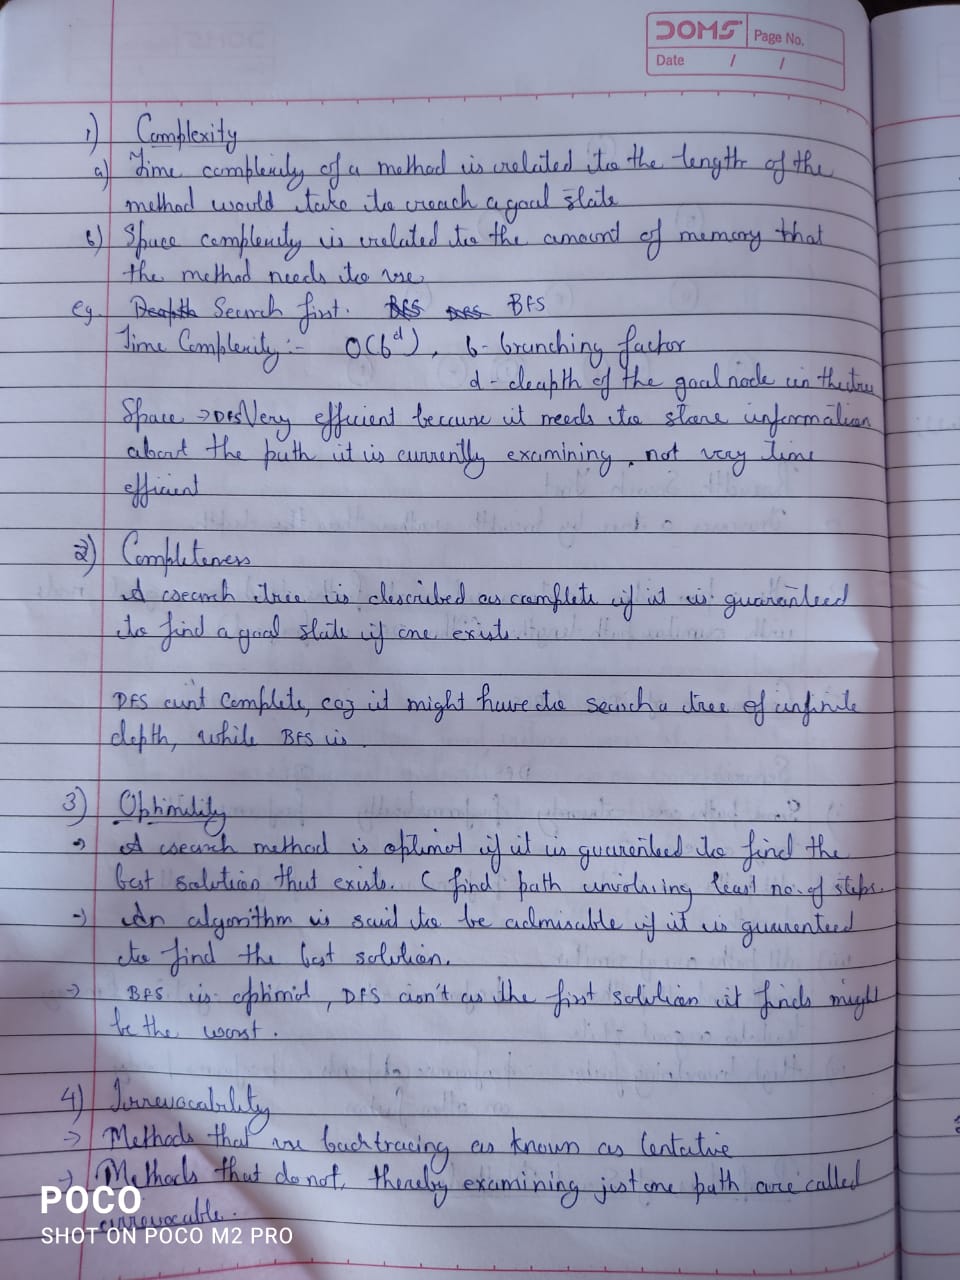 DOMS Page No.
Date / /
1) Complexity
a) Time complexity of a method is related to the length of the
method would take to reach a goal state
b) Space complexity is related to the amount of memory that
the method needs to use
eg. Depth Search first. BFS DFS BFS
Time Complexity :- O(b^d), b - branching factor
d - deapth of the goal node in the tree
Space → DFS Very efficient because it needs to store information
about the path it is currently examining, not very time
efficient
2) Completeness
A search tree is described as complete if it is guaranteed
to find a goal state if one exists.
DFS aint Complete, coz it might have to search a tree of infinite
depth, while BFS is.
3) Optimility
→ A search method is optimal if it is guarenteed to find the
best solution that exists. ( find path involving least no. of steps.
→ An algorithm is said to be admisable if it is guarenteed
to find the best solution.
→ BFS is optimal, DFS aint as the first solution it finds might
be the worst.
4) Irrevocability
→ Methods that use backtracing as known as tentative
→ Methods that do not, thereby examining just one path are called
irrevocable.
POCO
SHOT ON POCO M2 PRO